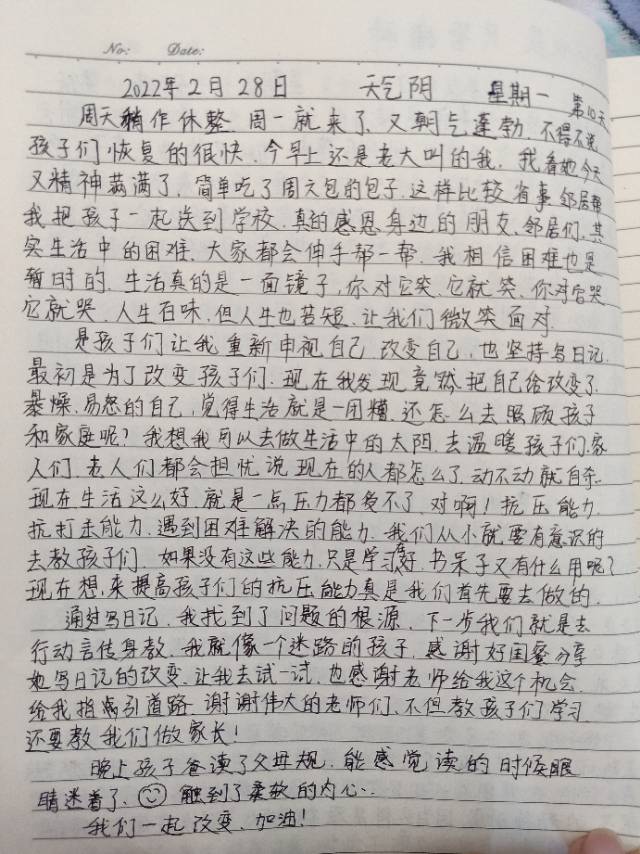 No: Date:
2022年2月28日 天气阴 星期一 第10天
周天稍作休整 周一就来了、又朝气蓬勃、不得不说
孩子们恢复的很快、今早上还是老大叫的我、我看她今天
又精神满满了、简单吃了周六包的包子、这样比较省事 邻居帮
我把孩子一起送到学校、真的感恩身边的朋友、邻居们、其
实生活中的困难、大家都会伸手帮一帮、我相信困难也是
暂时的、生活真的是一面镜子,你对它笑、它就笑、你对它哭
它就哭、人生百味、但人生也苦短、让我们微笑面对
是孩子们让我重新申视自己 改变自己、也坚持写日记、
最初是为了改变孩子们、现在我发现竟然把自己给改变了、
暴燥、易怒的自己,觉得生活就是一团糟、还怎么去照顾孩子
和家庭呢?我想我可以去做生活中的太阳、去温暖孩子们、家
人们、老人们都会担忧说 现在的人都怎么了、动不动就自杀、
现在生活这么好、就是一点压力都受不了、对啊!抗压能力、
抗打击能力、遇到困难解决的能力、我们从小就要有意识的
去教孩子们、如果没有这些能力、只是学习好、书呆子又有什么用呢?
现在想,来提高孩子们的抗压能力真是我们首先要去做的、
通过写日记、我找到了问题的根源、下一步我们就是去
行动言传身教、我就像一个迷路的孩子、感谢好闺蜜分享
她写日记的改变、让我去试一试、也感谢老师给我这个机会、
给我指点引道路、谢谢伟大的老师们、不但教孩子们学习、
还要教我们做家长!
晚上孩子爸读了父母规、能感觉读的时候眼
睛迷着了、触到了柔软的内心..
我们一起改变、加油!